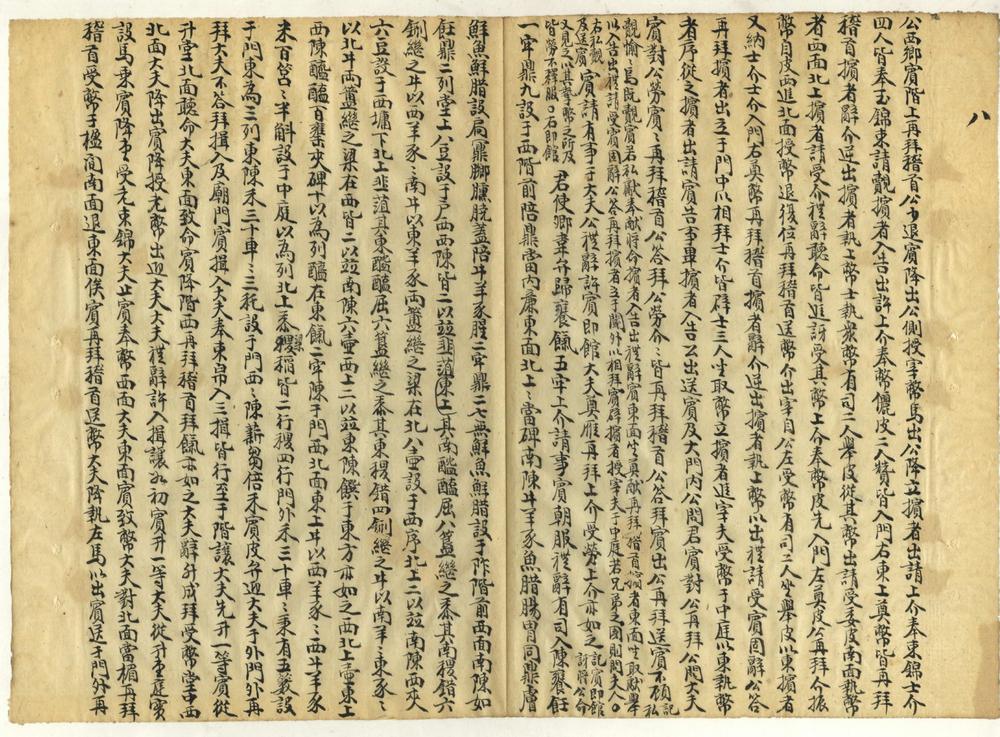 八
公西鄉賓階上再拜稽首公少退賓降出公側授宰幣馬出公降立擯者出請上介奉束錦士介
四人皆奉玉錦束請覿擯者入告出許上介奉幣儷皮二人贊皆入門右東上奠幣皆再拜
稽首擯者辭介逆出擯者執上幣士執衆幣有司二人舉皮從其幣出請受委皮南面執幣
者西面北上擯者請受介禮辭聽命皆進訝受其幣上介奉幣皮先入門左奠皮公再拜介振
幣自皮西進北面授幣退復位再拜稽首送幣介出宰自公左受幣有司二人坐舉皮以東擯者
又納士介士介入門右奠幣再拜稽首擯者辭介逆出擯者執上幣以出禮請受賓固辭公答
再拜擯者出立于門中以相拜士介皆辟士三人坐取幣立擯者進宰夫受幣于中庭以東執幣
者序從之擯者出請賓告事畢擯者入告公出送賓及大門內公問君賓對公再拜公問大夫
賓對公勞賓〻再拜稽首公答拜公勞介〻皆再拜稽首公答拜賓出公再拜送賓不顧記私
覿愉〻焉既覿賓若私獻奉獻將命擯者入告出禮辭賓東面坐奠獻再拜稽首擯者東面坐取獻舉
以入告出禮請受賓固辭公答再拜擯者立于閾外以相拜賓辟擯者授宰夫于中庭若兄弟之國則問夫人○
右私覿及送賓 賓請有事于大夫公禮辭許賓即館大夫奠雁再拜上介受勞上介亦如之記賓即館訝將公命
又見之以其摯幣之所及皆勞不釋服○右即館 君使卿韋弁歸饔餼五牢上介請事賓朝服禮辭有司入陳饔飪
一牢鼎九設于西階前陪鼎當內廉東面北上〻當碑南陳牛羊豕魚腊腸胃同鼎膚
鮮魚鮮腊設扃鼏膷臐膮蓋陪牛羊豕腥二牢鼎二七無鮮魚鮮腊設于阼階前西面南陳如
飪鼎二列堂上八豆設于戶西西陳皆二以並韭菹東上其南醓醢屈八簋繼之黍其南稷錯六
鉶繼之牛以西羊豕〻南牛以東羊豕兩簠繼之粱在北八壺設于西序北上二以並南陳西夾
六豆設于西墉下北上韭菹其東醓醢屈六簋繼之黍其東稷錯四鉶繼之牛以南羊〻東豕〻
以北牛兩簠繼之粱在西皆二以並南陳六壺西上二以並東陳饌于東方亦如之西北上壺東上
西陳醯醢百罋夾碑十以為列醯在東餼二牢陳于門西北面東上牛以西羊豕〻西牛羊豕
米百筥〻半斛設于中庭以為列北上黍粱稻皆二行稷四行門外米三十車〻秉有五籔設
于門東為三列東陳禾三十車〻三秅設于門西〻陳薪芻倍禾賓皮弁迎大夫于外門外再
拜大夫不答拜揖入及廟門賓揖入大夫奉束帛入三揖皆行至于階讓大夫先升一等賓從
升堂北面聽命大夫東面致命賓降階西再拜稽首拜餼亦如之大夫辭升成拜受幣堂中西
北面大夫降出賓降授老幣出迎大夫大夫禮辭許入揖讓如初賓升一等大夫從升堂庭實
設馬乘賓降堂受老束錦大夫止賓奉幣西面大夫東面賓致幣大夫對北面當楣再拜
稽首受幣于楹間南面退東面俟賓再拜稽首送幣大夫降執左馬以出賓送于門外再